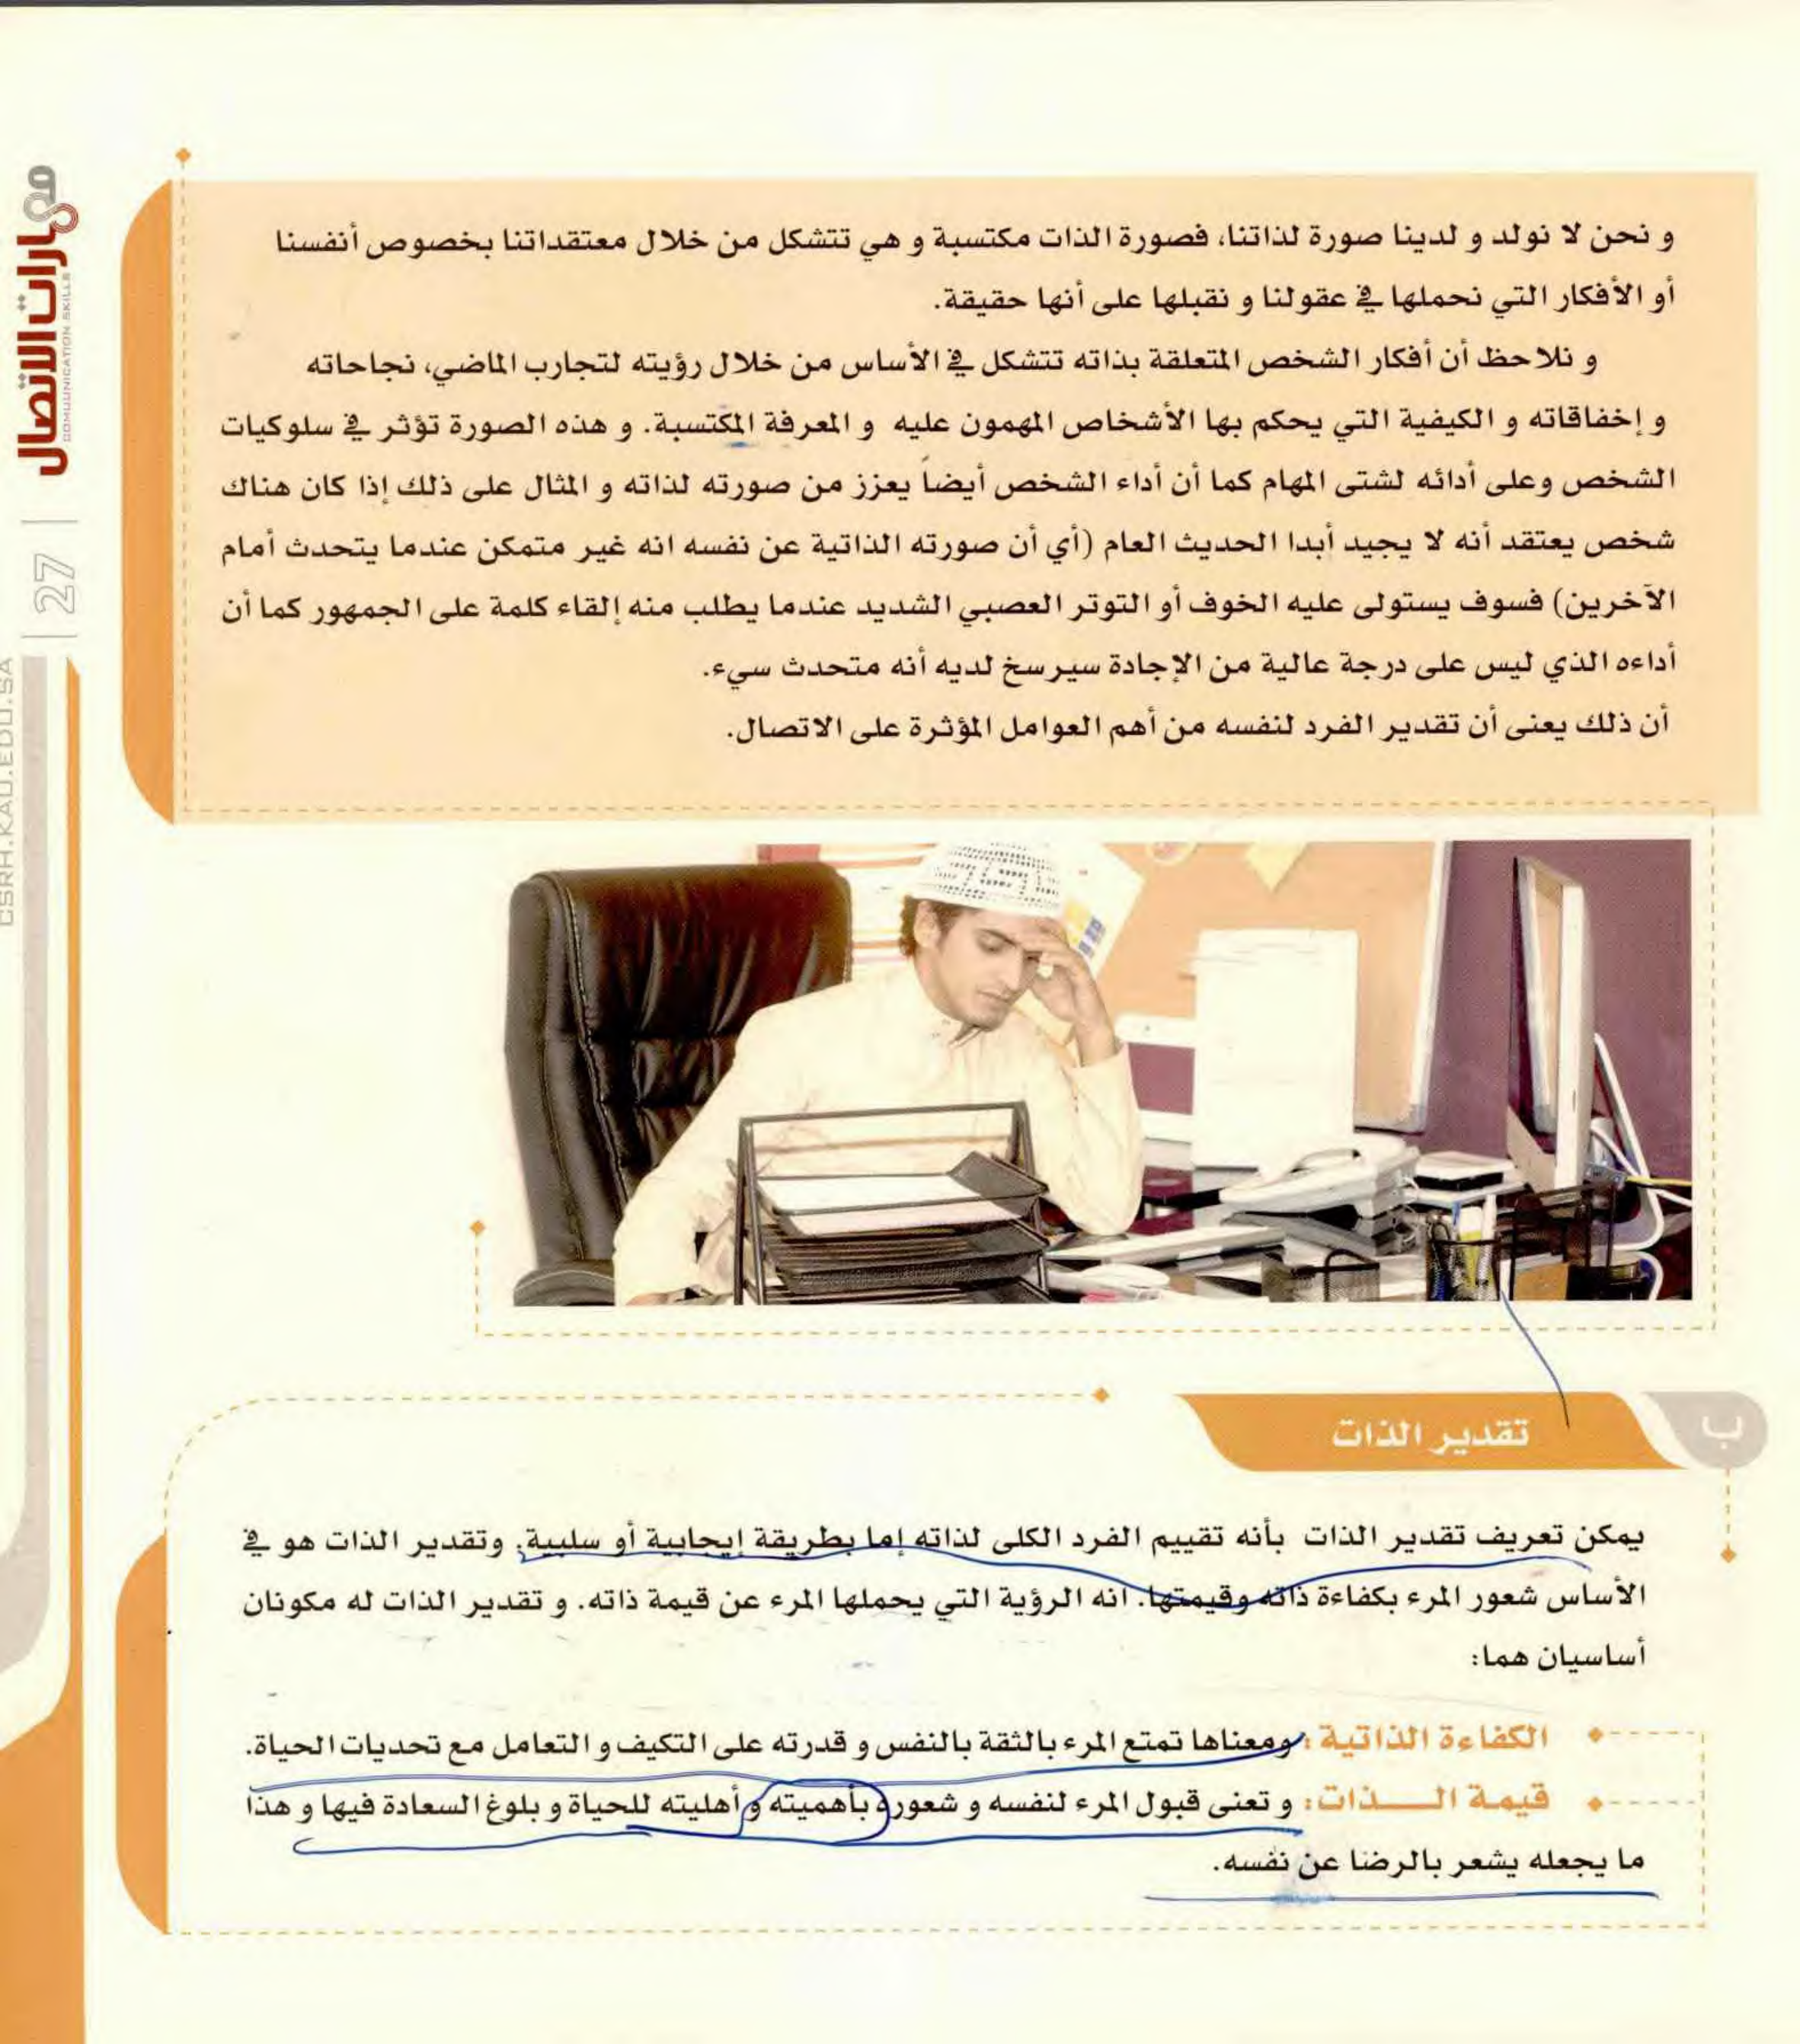 و نحن لا نولد و لدينا صورة لذاتنا، فصورة الذات مكتسبة و هي تتشكل من خلال معتقداتنا بخصوص أنفسنا
أو الأفكار التي نحملها في عقولنا و نقبلها على أنها حقيقة.
و نلاحظ أن أفكار الشخص المتعلقة بذاته تتشكل في الأساس من خلال رؤيته لتجارب الماضي، نجاحاته
و إخفاقاته و الكيفية التي يحكم بها الأشخاص المهمون عليه و المعرفة المكتسبة. و هذه الصورة تؤثر في سلوكيات
الشخص وعلى أدائه لشتى المهام كما أن أداء الشخص أيضاً يعزز من صورته لذاته و المثال على ذلك إذا كان هناك
شخص يعتقد أنه لا يجيد أبدا الحديث العام (أي أن صورته الذاتية عن نفسه انه غير متمكن عندما يتحدث أمام
الآخرين) فسوف يستولى عليه الخوف أو التوتر العصبي الشديد عندما يطلب منه إلقاء كلمة على الجمهور كما أن
أداءه الذي ليس على درجة عالية من الإجادة سيرسخ لديه أنه متحدث سيء.
أن ذلك يعنى أن تقدير الفرد لنفسه من أهم العوامل المؤثرة على الاتصال.
مهارات الاتصال
COMMUNICATION SKILLS
27
CSRH.KAU.EDU.SA
ب
تقدير الذات
يمكن تعريف تقدير الذات بأنه تقييم الفرد الكلى لذاته إما بطريقة إيجابية أو سلبية. وتقدير الذات هو في
الأساس شعور المرء بكفاءة ذاته وقيمتها. انه الرؤية التي يحملها المرء عن قيمة ذاته. و تقدير الذات له مكونان
أساسيان هما:
الكفاءة الذاتية : ومعناها تمتع المرء بالثقة بالنفس و قدرته على التكيف و التعامل مع تحديات الحياة.
قيمة الـــذات: و تعنى قبول المرء لنفسه و شعوره بأهميته و أهليته للحياة و بلوغ السعادة فيها و هذا
ما يجعله يشعر بالرضا عن نفسه.